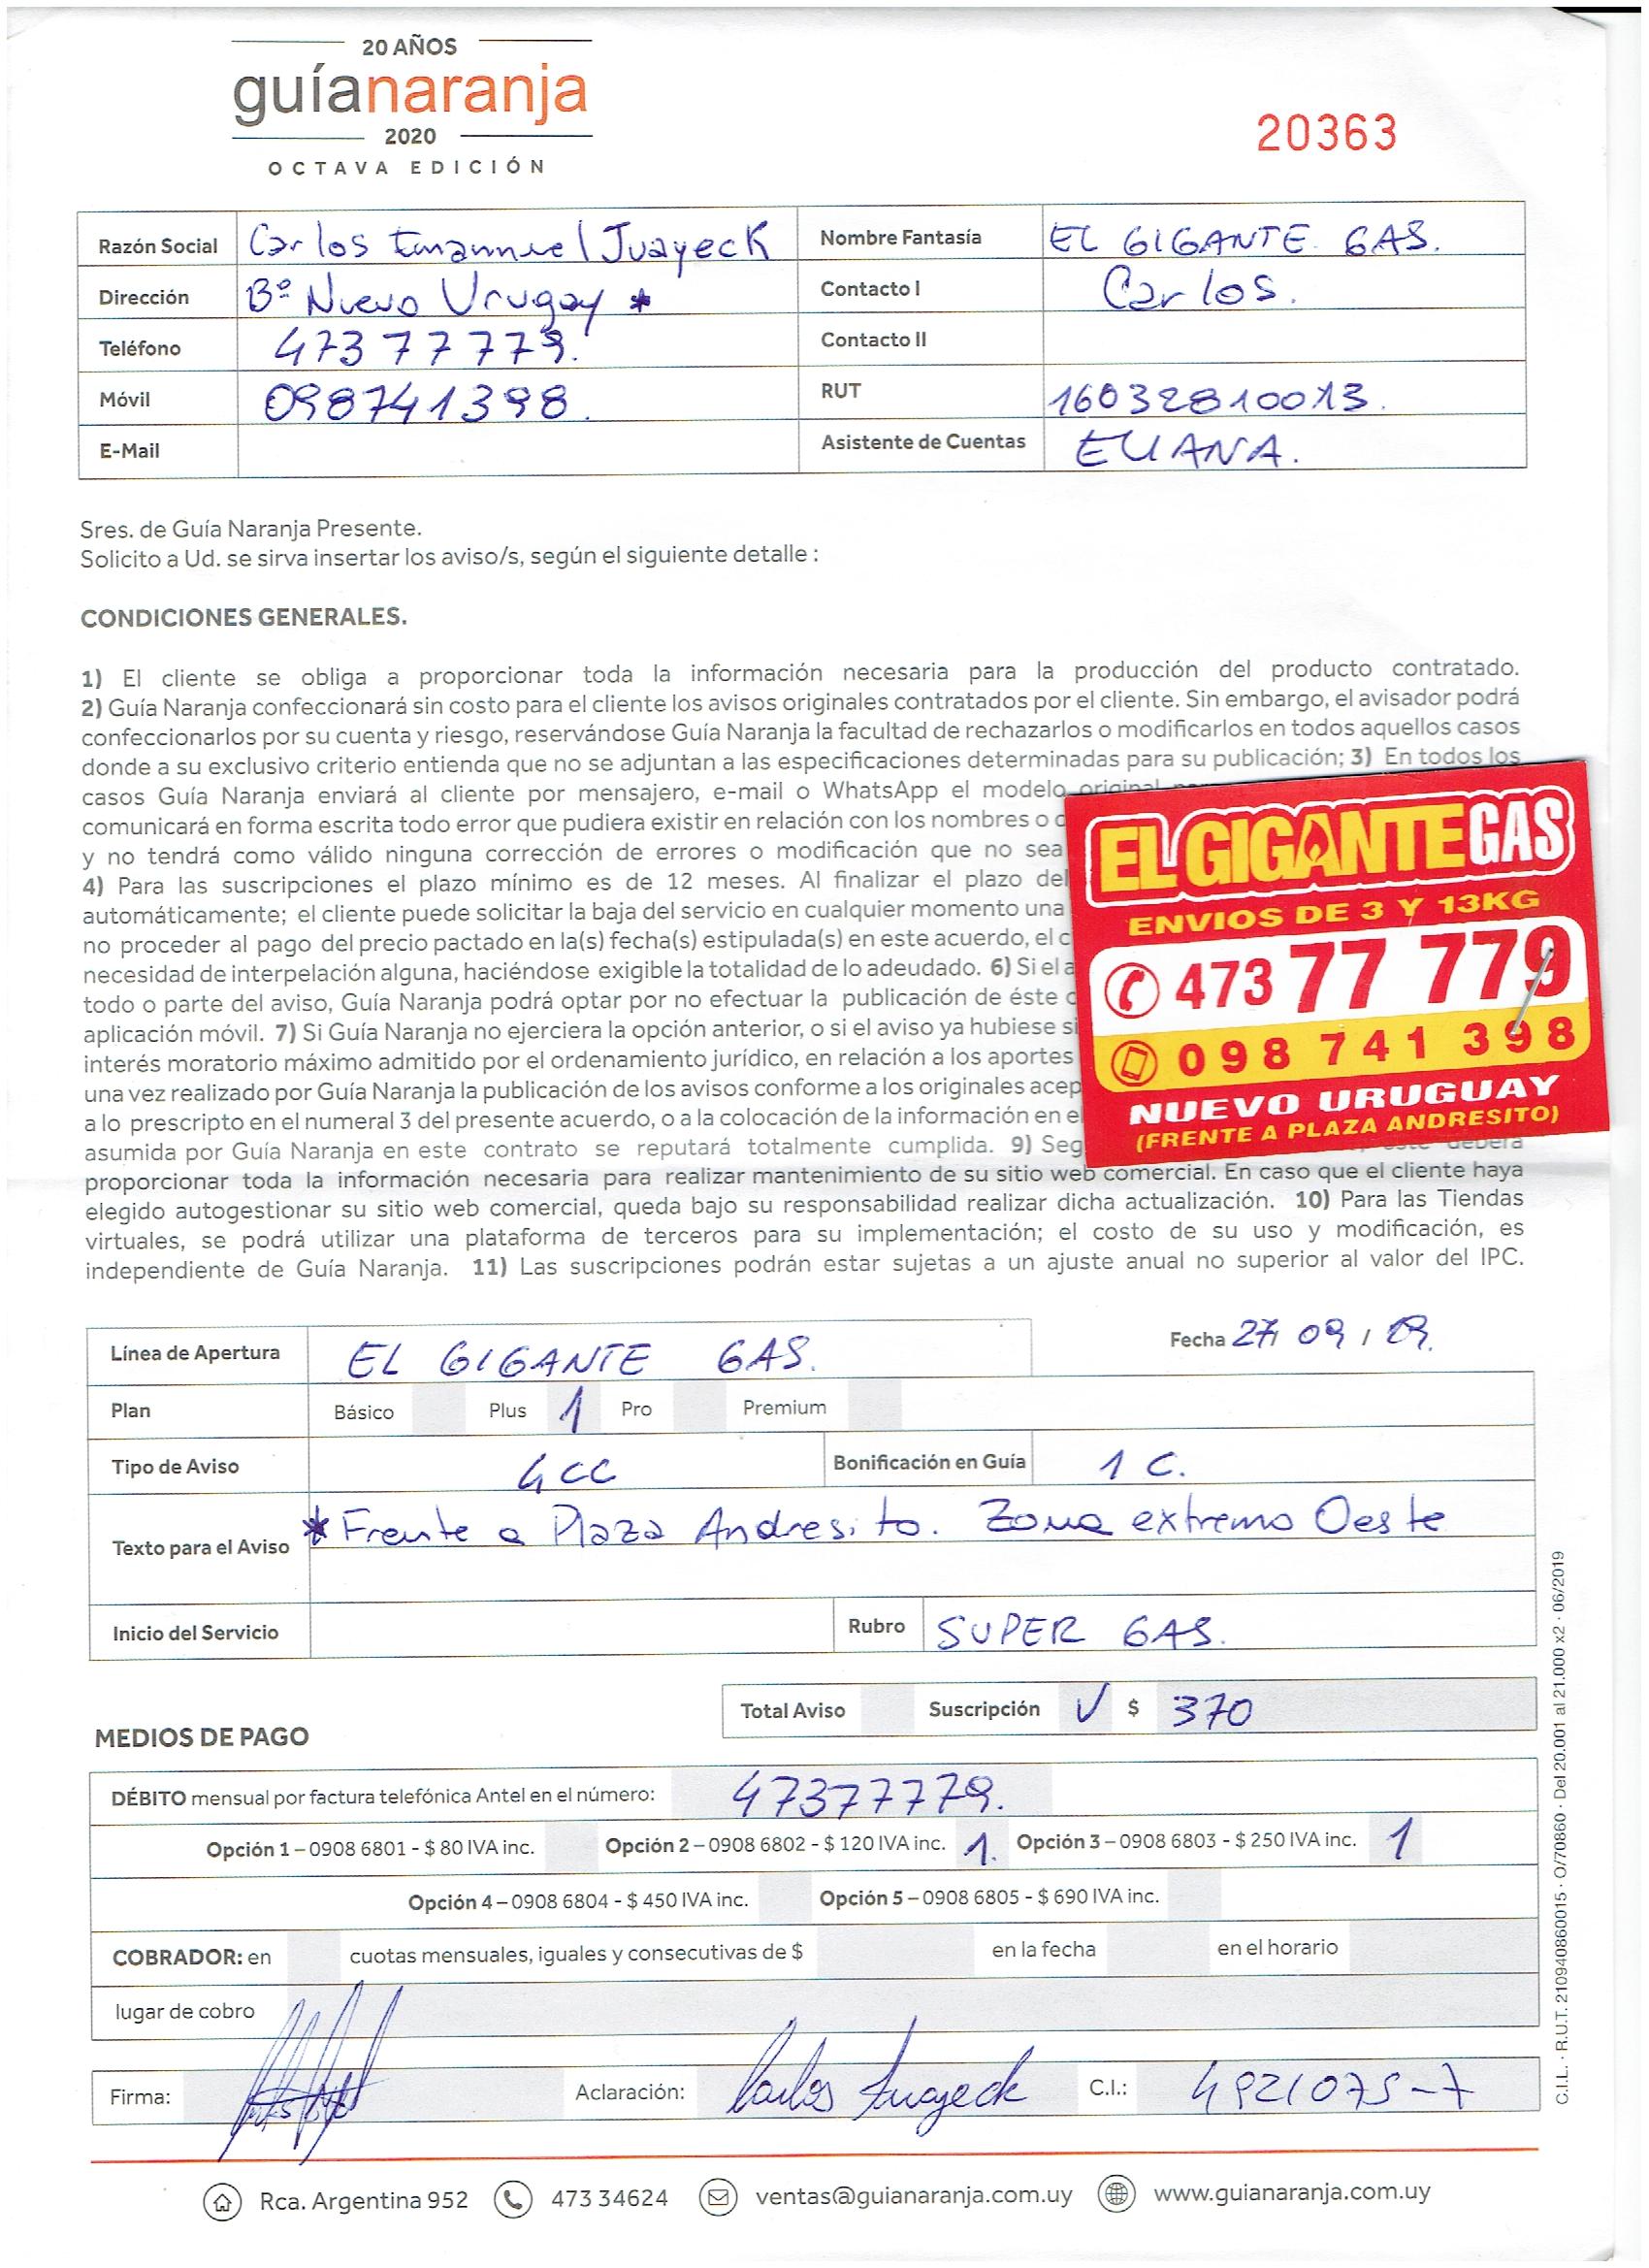 20 AÑOS
guíanaranja
2020
OCTAVA EDICIÓN
20363
Razón Social Carlos Emannuel Juayeck Nombre Fantasía EL GIGANTE GAS.
Dirección Bº Nuevo Urugay * Contacto I Carlos.
Teléfono 47377779. Contacto II
Móvil 098741398. RUT 16032810013.
E-Mail Asistente de Cuentas ELIANA.
Sres. de Guía Naranja Presente.
Solicito a Ud. se sirva insertar los aviso/s, según el siguiente detalle :
CONDICIONES GENERALES.
1) El cliente se obliga a proporcionar toda la información necesaria para la producción del producto contratado.
2) Guía Naranja confeccionará sin costo para el cliente los avisos originales contratados por el cliente. Sin embargo, el avisador podrá
confeccionarlos por su cuenta y riesgo, reservándose Guía Naranja la facultad de rechazarlos o modificarlos en todos aquellos casos
donde a su exclusivo criterio entienda que no se adjuntan a las especificaciones determinadas para su publicación; 3) En todos los
casos Guía Naranja enviará al cliente por mensajero, e-mail o WhatsApp el modelo original
comunicará en forma escrita todo error que pudiera existir en relación con los nombres o
y no tendrá como válido ninguna corrección de errores o modificación que no sea
4) Para las suscripciones el plazo mínimo es de 12 meses. Al finalizar el plazo del
automáticamente; el cliente puede solicitar la baja del servicio en cualquier momento una
no proceder al pago del precio pactado en la(s) fecha(s) estipulada(s) en este acuerdo, el
necesidad de interpelación alguna, haciéndose exigible la totalidad de lo adeudado. 6) Si el
todo o parte del aviso, Guía Naranja podrá optar por no efectuar la publicación de éste
aplicación móvil. 7) Si Guía Naranja no ejerciera la opción anterior, o si el aviso ya hubiese
interés moratorio máximo admitido por el ordenamiento jurídico, en relación a los aportes
una vez realizado por Guía Naranja la publicación de los avisos conforme a los originales
a lo prescripto en el numeral 3 del presente acuerdo, o a la colocación de la información en
asumida por Guía Naranja en este contrato se reputará totalmente cumplida. 9) deberá
proporcionar toda la información necesaria para realizar mantenimiento de su sitio web comercial. En caso que el cliente haya
elegido autogestionar su sitio web comercial, queda bajo su responsabilidad realizar dicha actualización. 10) Para las Tiendas
virtuales, se podrá utilizar una plataforma de terceros para su implementación; el costo de su uso y modificación, es
independiente de Guía Naranja. 11) Las suscripciones podrán estar sujetas a un ajuste anual no superior al valor del IPC.
EL GIGANTE GAS
ENVIOS DE 3 Y 13KG
473 77 779
098 741 398
NUEVO URUGUAY
(FRENTE A PLAZA ANDRESITO)
Línea de Apertura EL GIGANTE GAS. Fecha 27/ 09 / 19.
Plan Básico Plus 1 Pro Premium
Tipo de Aviso 4CC Bonificación en Guía 1 C.
Texto para el Aviso * Frente a Plaza Andresito. Zona extremo Oeste
Inicio del Servicio Rubro SUPER GAS.
Total Aviso Suscripción V $ 370
MEDIOS DE PAGO
DÉBITO mensual por factura telefónica Antel en el número: 47377779.
Opción 1 – 0908 6801 - $ 80 IVA inc. Opción 2 – 0908 6802 - $ 120 IVA inc. 1. Opción 3 – 0908 6803 - $ 250 IVA inc. 1
Opción 4 – 0908 6804 - $ 450 IVA inc. Opción 5 – 0908 6805 - $ 690 IVA inc.
COBRADOR: en cuotas mensuales, iguales y consecutivas de $ en la fecha en el horario
lugar de cobro
Firma: Aclaración: Carlos Juayeck C.I.: 4921075-7
Rca. Argentina 952 473 34624 ventas@guianaranja.com.uy www.guianaranja.com.uy
C.I.L. · R.U.T. 210940860015 · O/70860 · Del 20.001 al 21.000 x2 · 06/2019